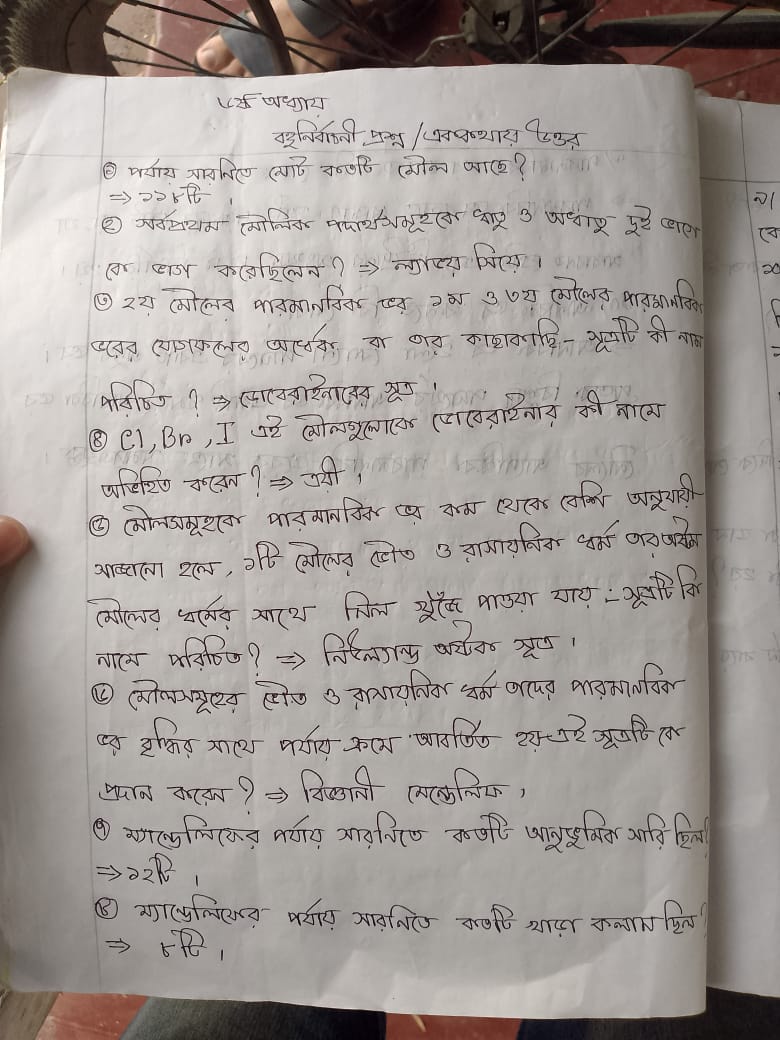 ৬ষ্ঠ অধ্যায়
বহুনির্বাচনী প্রশ্ন / এককথায় উত্তর
① পর্যায় সারনিতে মোট কতটি মৌল আছে?
⇒ ১১৮টি।
② সর্বপ্রথম মৌলিক পদার্থসমূহকে ধাতু ও অধাতু দুই ভাগে
কে ভাগ করেছিলেন? ⇒ ল্যাভয়সিয়ে।
③ ২য় মৌলের পারমানবিক ভর ১ম ও ৩য় মৌলের পারমানবিক
ভরের যোগফলের অর্ধেক বা তার কাছাকাছি - সূত্রটি কী নামে
পরিচিত? ⇒ ডোবেরাইনারের সূত্র।
④ Cl, Br, I এই মৌলগুলোকে ডোবেরাইনার কী নামে
অভিহিত করেন? ⇒ ত্রয়ী।
⑤ মৌলসমূহকে পারমানবিক ভর কম থেকে বেশি অনুযায়ী
সাজানো হলে, ১টি মৌলের ভৌত ও রাসায়নিক ধর্ম তার অষ্টম
মৌলের ধর্মের সাথে মিল খুঁজে পাওয়া যায় - সূত্রটি কি
নামে পরিচিত? ⇒ নিউল্যান্ড অষ্টক সূত্র।
⑥ মৌলসমূহের ভৌত ও রাসায়নিক ধর্ম তাদের পারমানবিক
ভর বৃদ্ধির সাথে পর্যায় ক্রমে আবর্তিত হয়-এই সূত্রটি কে
প্রদান করেন? ⇒ বিজ্ঞানী মেন্ডেলিফ,
⑦ ম্যান্ডেলিফের পর্যায় সারনিতে কতটি আনুভূমিক সারি ছিল?
⇒ ১২টি।
⑧ ম্যান্ডেলিফের পর্যায় সারনিতে কতটি খাড়া কলাম ছিল?
⇒ ৮টি।